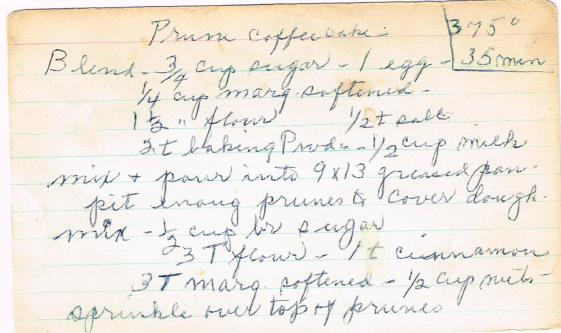 Prune coffeecake
375°
Blend - 3/4 cup sugar - 1 egg - 35 min
1/4 cup marg. softened -
1 1/2 " flour 1/2 t salt
2t baking Powd - 1/2 cup milk
mix + pour into 9x13 greased pan.
pit enoug prunes to cover dough.
mix - 1/2 cup br sugar
3 T flour - 1 t cinnamon
3 T marg. softened - 1/2 cup nuts -
sprinkle over top of prunes